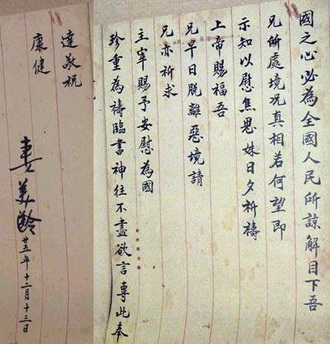 國之心必為全國人民所諒解目下吾
兄所處境況真相若何望即
示知以慰焦思妹日夕祈禱
上帝賜福吾
兄早日脫離惡境請
兄亦祈求
主宰賜予安慰為國
珍重為禱臨書神往不盡欲言專此奉
達敬祝
康健
美齡
廿五年十二月十三日